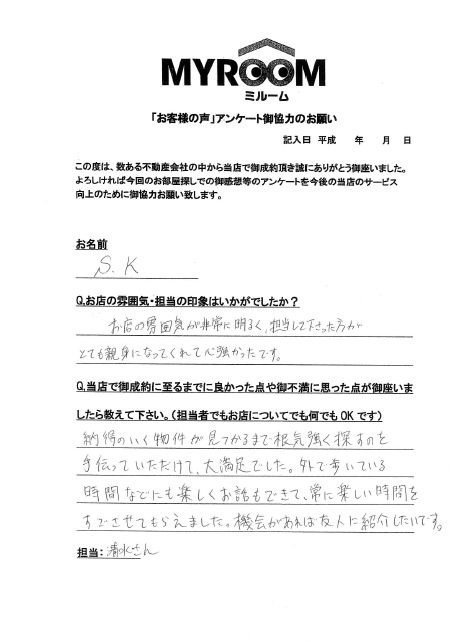 MYROOM
ミルーム
「お客様の声」アンケート御協力のお願い
記入日 平成　　年　　月　　日
この度は、数ある不動産会社の中から当店で御成約頂き誠にありがとう御座いました。
よろしければ今回のお部屋探しでの御感想等のアンケートを今後の当店のサービス
向上のために御協力お願い致します。
お名前
S.K
Q.お店の雰囲気・担当の印象はいかがでしたか？
お店の雰囲気が非常に明るく、担当して下さった方が
とても親身になってくれて心強かったです。
Q.当店で御成約に至るまでに良かった点や御不満に思った点が御座いま
したら教えて下さい。（担当者でもお店についてでも何でもOKです）
納得のいく物件が見つかるまで根気強く探すのを
手伝っていただけて、大満足でした。外で歩いている
時間などにも楽しくお話もできて、常に楽しい時間を
すごさせてもらえました。機会があれば友人に紹介したいです。
担当：清水さん